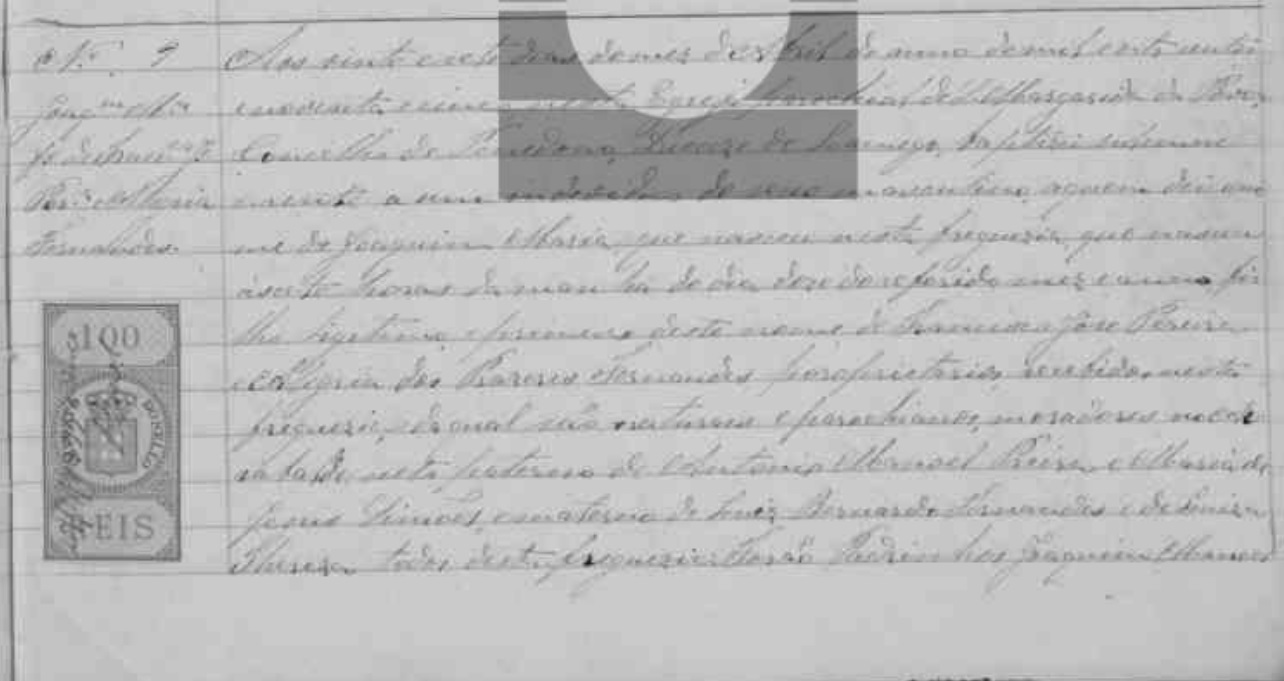 Nº 9
Joaqm Ma
fo de Franco Je
Pera e Maria
Fernandes.
Aos vinte e sete dias do mez d'Abril do anno de mil oito centos
e noventa e cinco nesta Egreja parochial de S. Margarida da Povoa
Concelho de Penedono, Diocese de Lamego, baptizei solemne
mente a um individuo do sexo masculino, a quem dei o no
me de Joaquim Maria, que nasceu nesta freguezia, que nasceu
ás horas da manhã do dia doze do referido mez e anno, fi
lho legitimo e primeiro deste nome, de Francisco José Pereira
e Maria dos Prazeres Fernandes proprietarios, recebidos nesta
freguezia, da qual são naturaes e parochianos, moradores no
neto paterno de Antonio Manoel Pereira, e Maria de
Jesus Simões, e materno de Luiz Bernardo Fernandes e de Luiza
Thereza todos desta freguezia: Forão Padrinhos Joaquim Manoel
100
DOSELLO
REIS